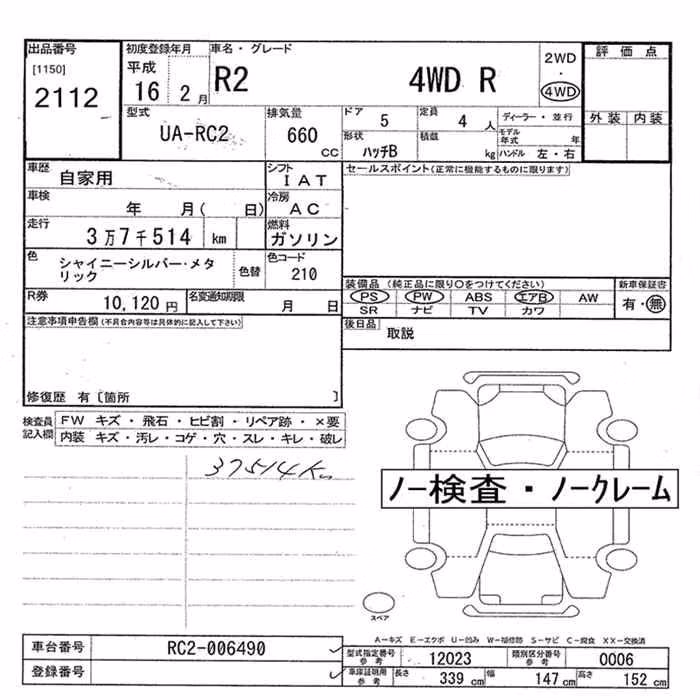 出品番号
[1150]
2112
初度登録年月
平成
16 2 月
車名・グレード
R2 4WD R
2WD
・
4WD
評価点
外装 内装
型式
UA-RC2
排気量
660
CC
ドア 5
定員 4 人
ディーラー・並行
形状 ハッチB
積載 kg
モデル年式 年
ハンドル 左・右
車歴
自家用
シフト
IAT
車検
年 月( 日)
冷房
AC
走行
3万7千514 km
燃料
ガソリン
色
シャイニーシルバー・メタリック
色替
色コード
210
R券
10,120 円
名変通知期限
月 日
セールスポイント(正常に機能するものに限ります)
装備品 (純正品に限り○をつけてください)
PS PW ABS エアB AW
SR ナビ TV カワ
新車保証書
有・無
後日品
取説
注意事項申告欄(不具合内容等は具体的に記入して下さい)
修復歴 有〔箇所 〕
検査員記入欄
FW キズ・飛石・ヒビ割・リペア跡・×要
内装 キズ・汚レ・コゲ・穴・スレ・キレ・破レ
37514Km
ノー検査・ノークレーム
スペア
A-キズ E-エクボ U-凹み W-補修跡 S-サビ C-腐食 XX-交換済
車台番号
RC2-006490
登録番号
型式指定番号
参考
12023
類別区分番号
参考
0006
車庫証明用
参考
長さ 339 cm
幅 147 cm
高さ 152 cm